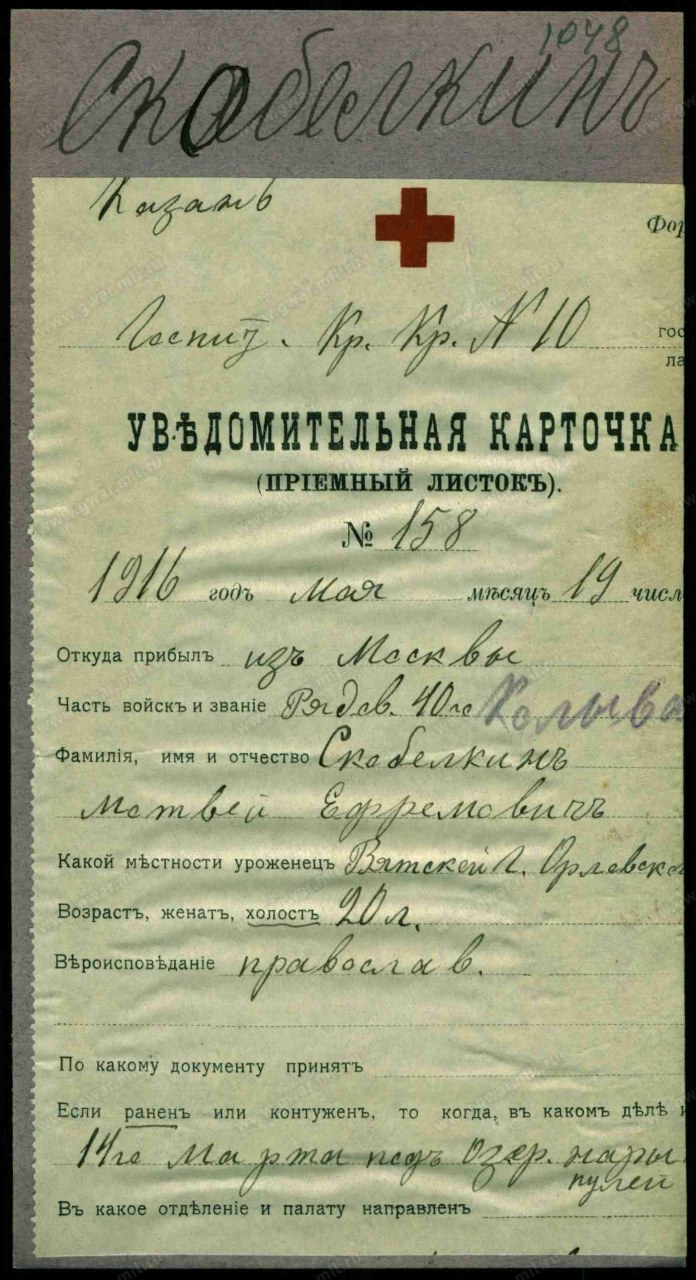 1048
Скобелкинъ
Казань
Фор
Госпит. Кр. Кр. № 10
гос
ла
УВѢДОМИТЕЛЬНАЯ КАРТОЧКА
(ПРІЕМНЫЙ ЛИСТОКЪ).
№ 158
1916 годъ мая мѣсяцъ 19 числ
Откуда прибылъ изъ Москвы
Часть войскъ и званіе Рядов. 40го Колыва
Фамилія, имя и отчество Скобелкинъ
Матвей Ефремовичъ
Какой мѣстности уроженецъ Вятской г. Орловско
Возрастъ, женатъ, холостъ 20 л.
Вѣроисповѣданіе православ.
По какому документу принятъ
Если раненъ или контуженъ, то когда, въ какомъ дѣлѣ и
14го Марта подъ озер. нары
пулей
Въ какое отдѣленіе и палату направленъ